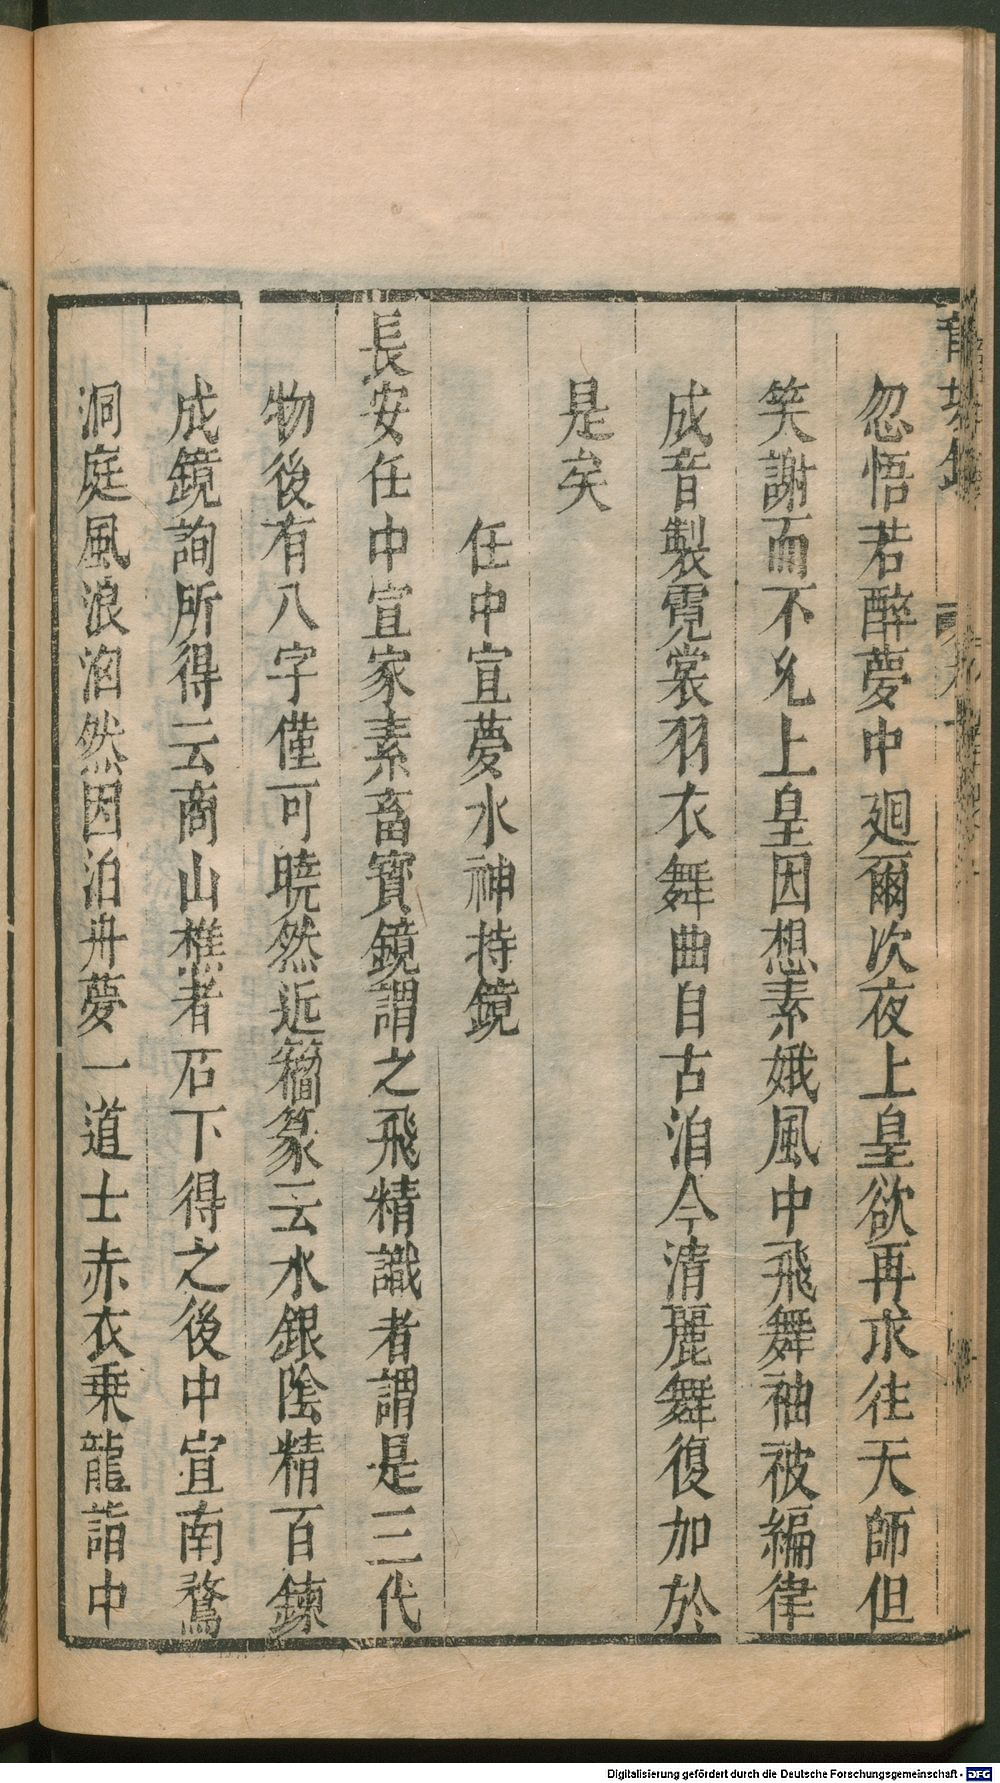 忽悟若醉夢中廻爾次夜上皇欲再求往天師但
笑謝而不允上皇因想素娥風中飛舞袖被編律
成音製霓裳羽衣舞曲自古洎今清麗舞復加於
是矣
任中宣夢水神持鏡
長安任中宣家素畜寳鏡謂之飛精識者謂是三代
物後有八字僅可曉然近籀篆云水銀陰精百鍊
成鏡詢所得云商山樵者石下得之後中宣南騖
洞庭風浪洶然因泊舟夢一道士赤衣乗龍詣中
Digitalisierung gefördert durch die Deutsche Forschungsgemeinschaft - DFG